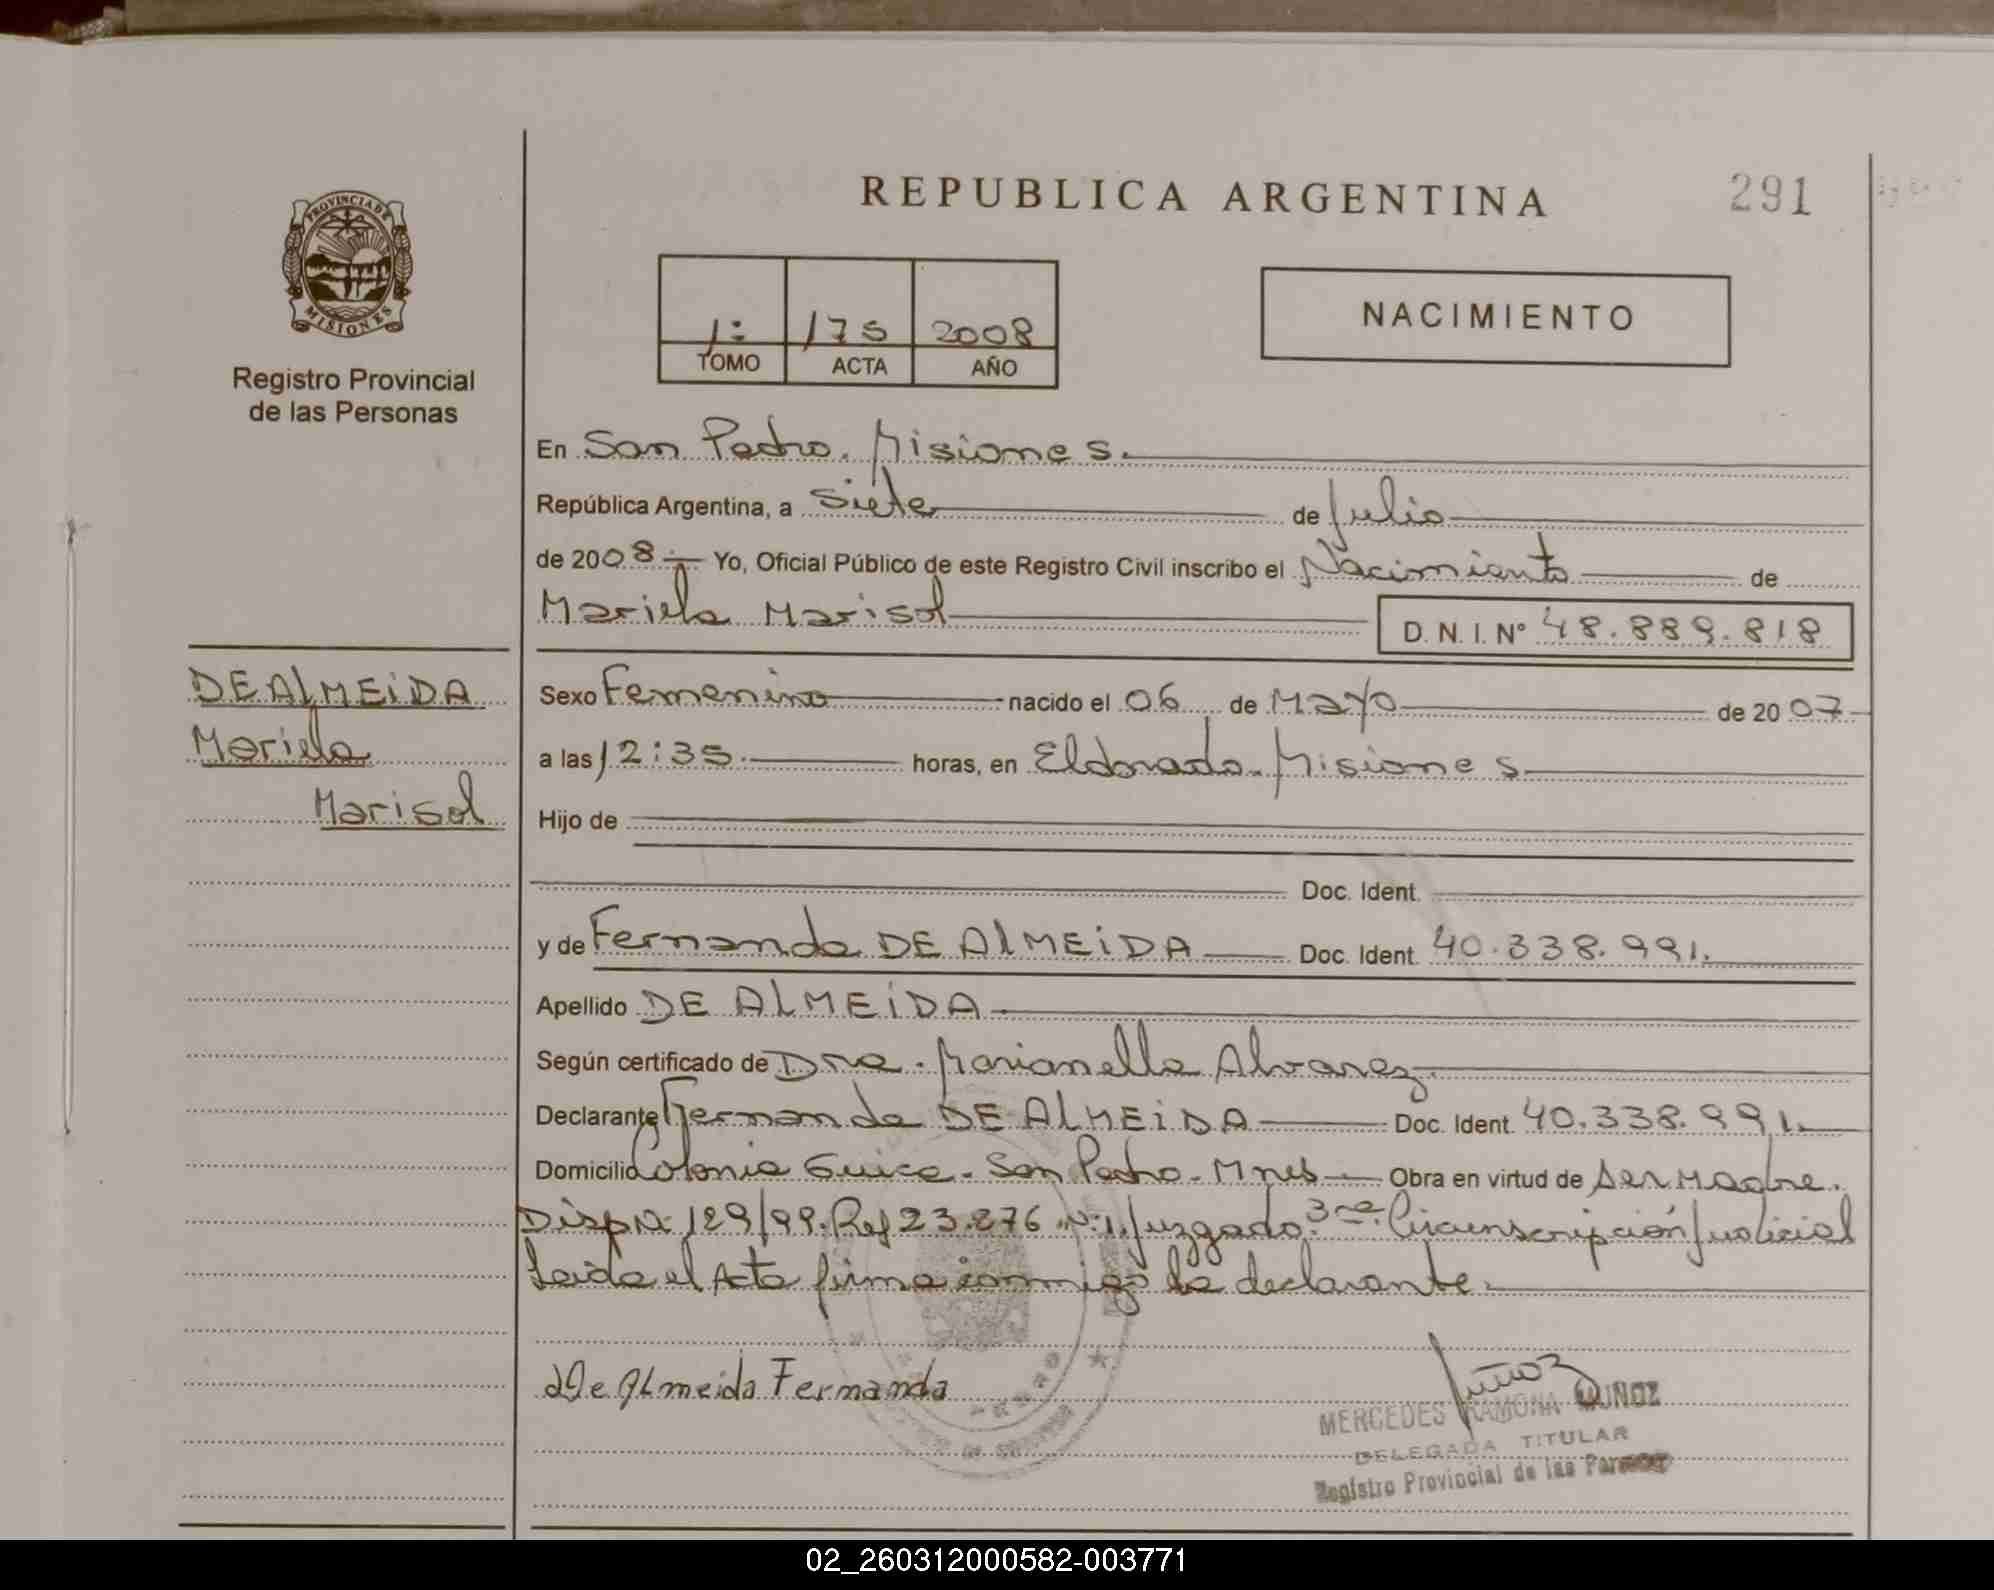 REPUBLICA ARGENTINA
291
PROVINCIA DE
MISIONES
Registro Provincial
de las Personas
1: 175 2008
TOMO ACTA AÑO
NACIMIENTO
En San Pedro. Misiones.
República Argentina, a Siete de Julio
de 2008.- Yo, Oficial Público de este Registro Civil inscribo el Nacimiento de
Mariela Marisol
D. N. I. Nº 48.889.818
DE ALMEIDA
Mariela
Marisol
Sexo Femenino nacido el 06 de Mayo de 20 07
a las 12:35. horas, en Eldorado. Misiones
Hijo de
Doc. Ident.
y de Fernanda DE ALMEIDA Doc. Ident. 40.338.991.
Apellido DE ALMEIDA
Según certificado de Dra. Marianella Alvarez
Declarante Fernanda DE ALMEIDA Doc. Ident. 40.338.991.
Domicilio Colonia Guica. San Pedro. Mnes Obra en virtud de ser Madre.
Disp Nº 129/99. Ref 23.276 Nº:1. Juzgado 3ra. Circunscripción Judicial
Leida el Acta firma conmigo la declarante.
De Almeida Fernanda
MERCEDES RAMONA MUÑOZ
DELEGADA TITULAR
Registro Provincial de las Personas
02_260312000582-003771